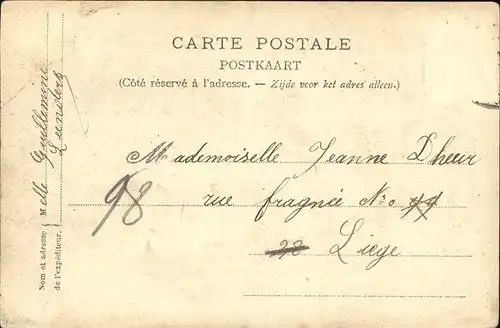 CARTE POSTALE
POSTKAART
(Côté réservé à l'adresse. — Zijde voor het adres alleen.)
Mademoiselle Jeanne Dheur
rue fragnée No 44
98
22 Liege
Nom et adresse
de l'expéditeur.
Melle Guillemine
Lunders